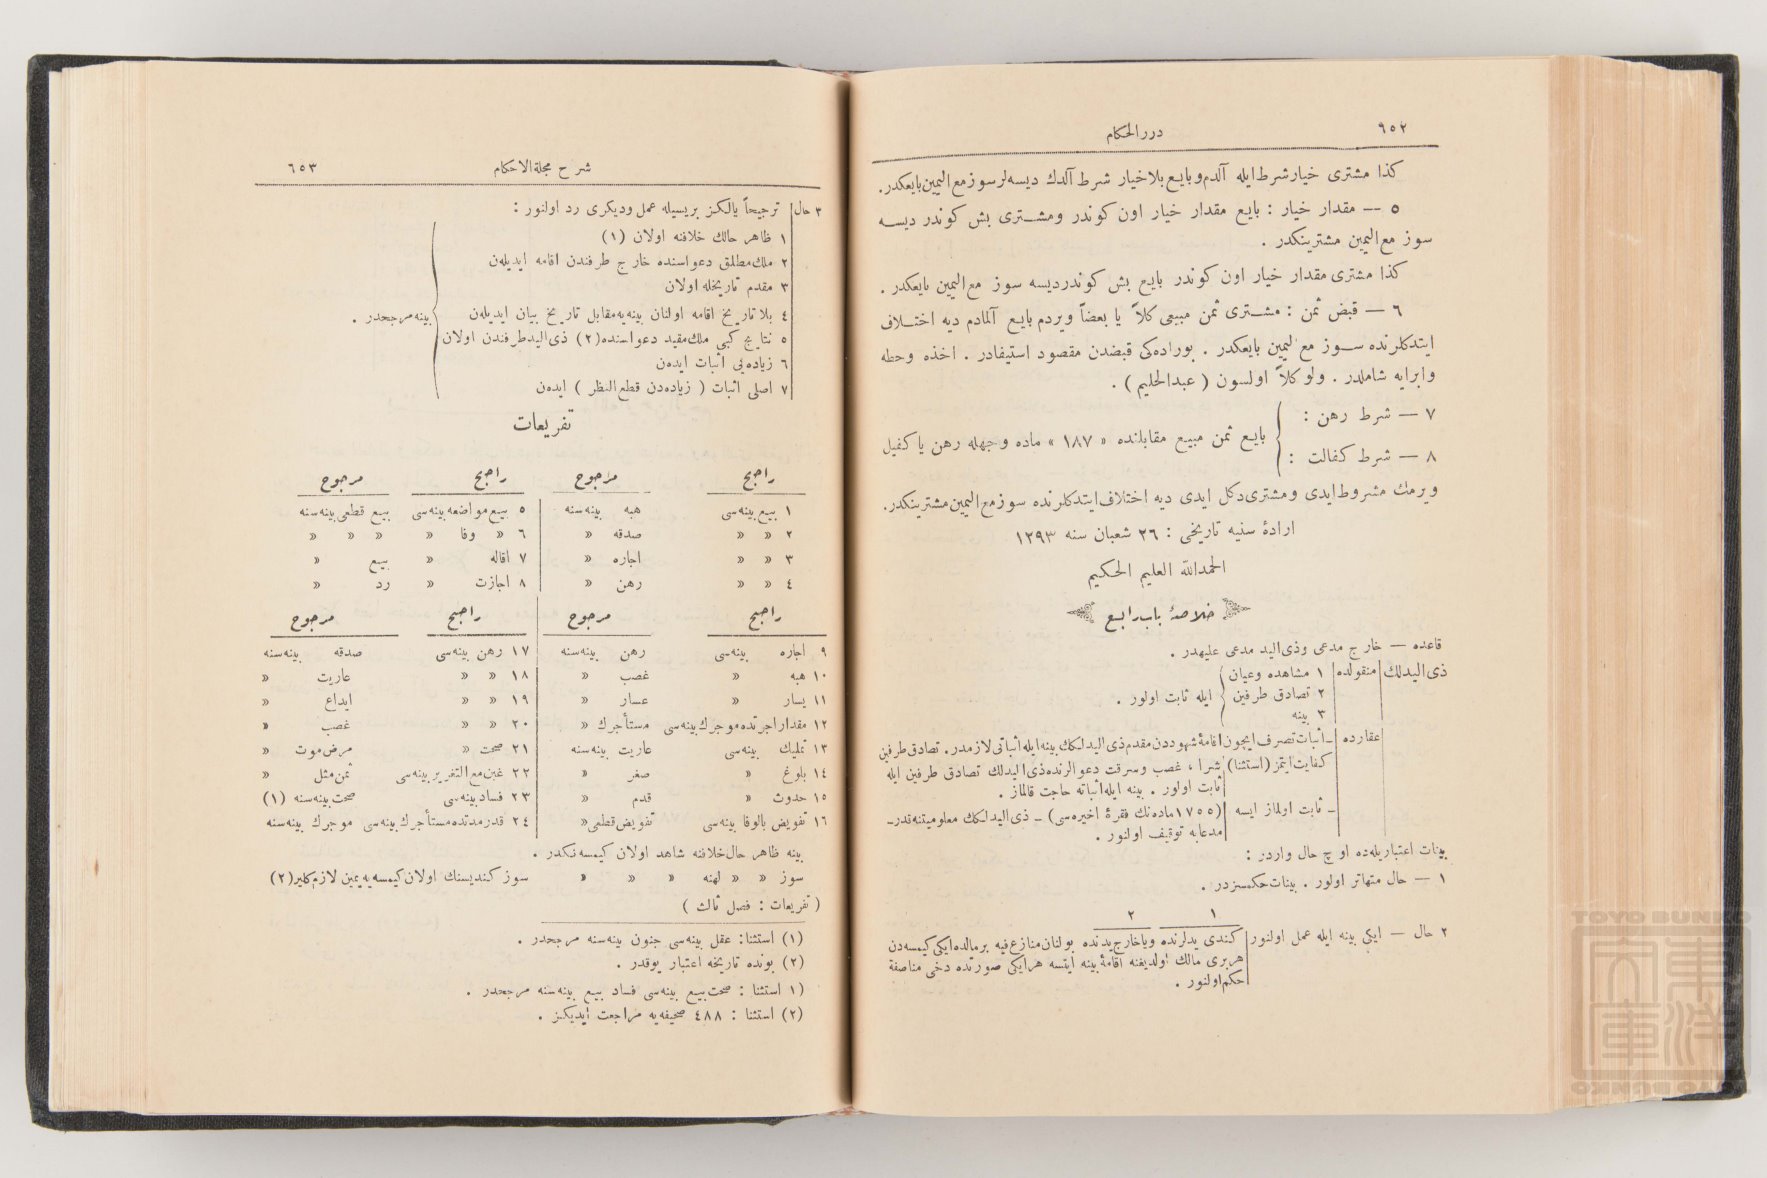 ٦٥٢
درر الحكام
كذا مشتری خيار شرط ايله آلدم و بايع بلاخيار شرط آلدك ديسه لر سوز مع اليمين بايعكدر.
٥ — مقدار خيار : بايع مقدار خيار اون كوندر ومشتری بش كوندر ديسه
سوز مع اليمين مشترينكدر .
كذا مشتری مقدار خيار اون كوندر بايع بش كوندر ديسه سوز مع اليمين بايعكدر .
٦ — قبض ثمن : مشتری ثمن مبيعی كلاً يا بعضاً ويردم بايع آلمادم ديه اختلاف
ايتدكلرنده سوز مع ليمين بايعكدر . بوراده كی قبضدن مقصود استيفادر . اخذه وحطه
وابرايه شاملدر . ولو كلاً اولسون ( عبدالحليم ) .
٧ — شرط رهن :
٨ — شرط كفالت :
بايع ثمن مبيع مقابلنده « ١٨٧ » ماده وجهله رهن يا كفيل
ويرمك مشروط ايدی ومشتری دكل ايدی ديه اختلاف ايتدكلرنده سوز مع اليمين مشترينكدر.
ارادۀ سنيه تاريخی : ٢٦ شعبان سنه ١٢٩٣
الحمدالله العليم الحكيم
خلاصۀ باب رابع
قاعده — خارج مدعی وذی اليد مدعی عليهدر .
ذی اليدلك منقولده ١ مشاهده وعيان
٢ تصادق طرفين
٣ بينه
ايله ثابت اولور .
عقارده ـ اثبات تصرف ايچون اقامۀ شهوددن مقدم ذی اليدلكك بينه ايله اثباتی لازمدر. تصادق طرفين
كفايت ايتمز (استثنا) شرا ، غصب وسرقت دعوالرنده ذی اليدلك تصادق طرفين ايله
ثابت اولور . بينه ايله اثباته حاجت قالماز .
ـ ثابت اولماز ايسه (١٧٥٥ ماده نك فقرۀ اخيره سی) ـ ذی اليدلكك معلوميتنه قدر ـ
مدعابه توقيف اولنور .
بينات اعتباريله ده اوچ حال واردر :
١ — حال متهاتر اولور . بينات حكمسزدر .
١ ٢
٢ حال — ايكی بينه ايله عمل اولنور كندی يدلرنده وياخارج يدنده بولنان منازع فيه بر مالده ايكی كيمسه دن
هر بری مالك اولديغنه اقامۀ بينه ايتسه هر ايكی صورتده دخی مناصفة
حكم اولنور .
شرح مجلة الاحكام
٦٥٣
٣ حال ترجيحاً يالكز بريسيله عمل وديكری رد اولنور :
١ ظاهر حالك خلافنه اولان (١)
٢ ملك مطلق دعواسنده خارج طرفندن اقامه ايديلەن
٣ مقدم تاريخله اولان
٤ بلاتاريخ اقامه اولنان بينه يه مقابل تاريخ بيان ايديلەن
٥ نتايج كبی ملك مقيد دعواسنده (٢) ذی اليد طرفندن اولان
٦ زياده يی اثبات ايدەن
٧ اصلی اثبات ( زياده دن قطع النظر ) ايدەن
بينه مرجحدر .
تفريعات
راجح مرجوح راجح مرجوح
١ بيع بينه سی هبه بينه سنه ٥ بيع مواضعه بينه سی بيع قطعی بينه سنه
٢ « « صدقه « ٦ « وفا « « « «
٣ « « اجاره « ٧ اقاله « بيع «
٤ « « رهن « ٨ اجازت « رد «
راجح مرجوح راجح مرجوح
٩ اجاره بينه سی رهن بينه سنه ١٧ رهن بينه سی صدقه بينه سنه
١٠ هبه « غصب « ١٨ « « عاريت «
١١ يسار « عسار « ١٩ « « ايداع «
١٢ مقدار اجرتده موجرك بينه سی مستأجرك « ٢٠ « « غصب «
١٣ تمليك بينه سی عاريت بينه سنه ٢١ صحت « مرض موت «
١٤ بلوغ « صغر « ٢٢ غبن مع التغرير بينه سی ثمن مثل «
١٥ حدوث « قدم « ٢٣ فساد بينه سی صحت بينه سنه (١)
١٦ تفويض بالوفا بينه سی تفويض قطعی « ٢٤ قدر مدتده مستأجرك بينه سی موجرك بينه سنه
بينه ظاهر حال خلافنه شاهد اولان كيمسه نكدر .
سوز « « لهنه « « « سوز كنديسنك اولان كيمسه يه يمين لازم كلير (٢)
( تفريعات : فصل ثالث )
(١) استثنا : عقل بينه سی جنون بينه سنه مرجحدر .
(٢) بونده تاريخه اعتبار يوقدر .
(١) استثنا : صحت بيع بينه سی فساد بيع بينه سنه مرجحدر .
(٢) استثنا : ٤٨٨ صحيفه يه مراجعت ايديكز .
TOYO BUNKO
東洋文庫
TOYO BUNKO